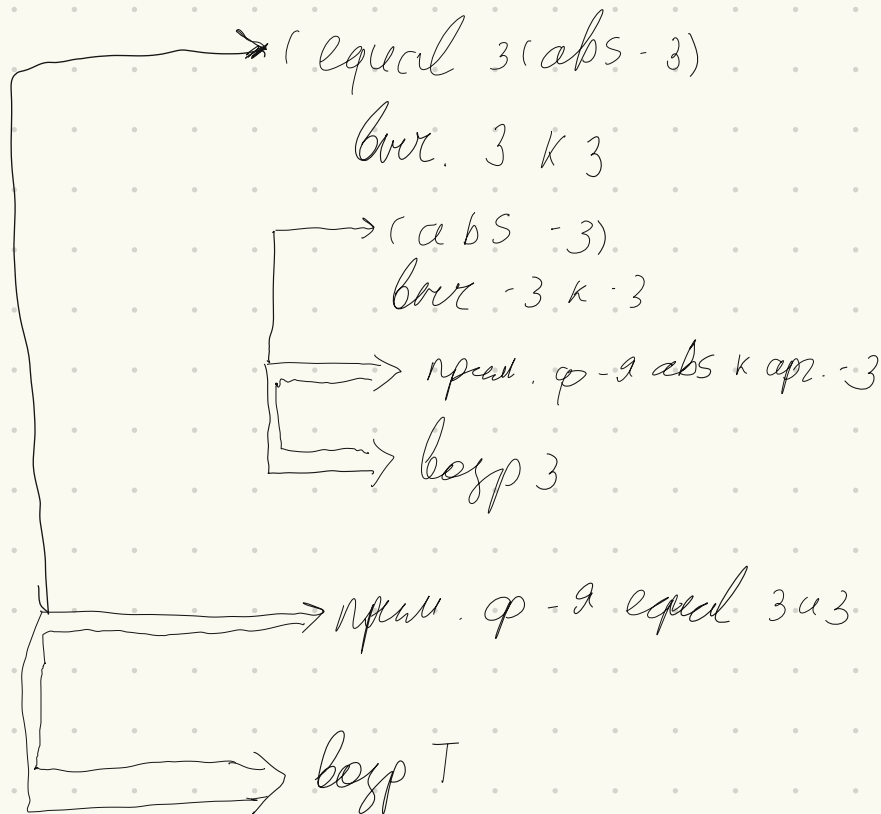 ( equal 3 (abs -3)
выч. 3 к 3
(abs -3)
выч -3 к -3
прим. ф-я abs к арг. -3
возр 3
прим. ф-я equal 3 и 3
возр T